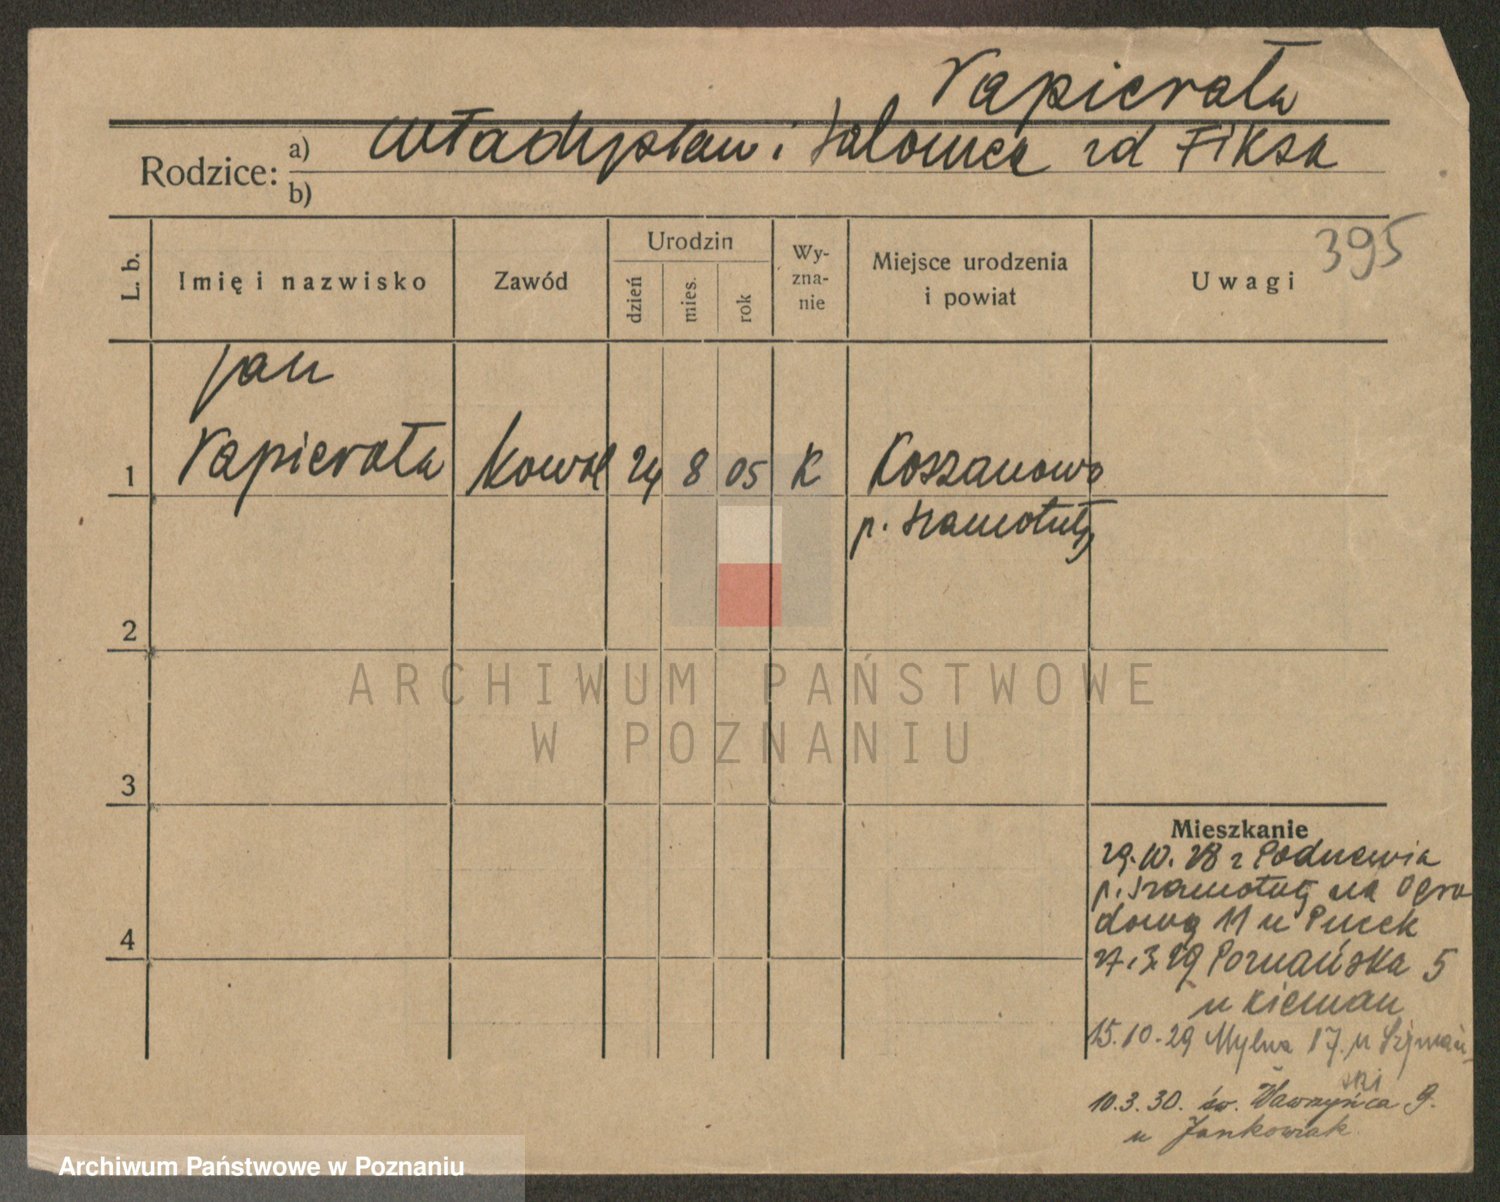 Papierała
Rodzice: a) Władysław i Salomea zd Fiksa
b)
395
L. b. Imię i nazwisko Zawód Urodzin dzień mies. rok Wy-zna-nie Miejsce urodzenia i powiat Uwagi
Jan
1 Papierała kowal 24 8 05 K Koszanowo
p. Szamotuły
2
3
4
Mieszkanie
29. 10. 28 z
p. Szamotuły na Ogro
dową 11 u
27. 3. 29 Poznańska 5
u Kieman
15. 10. 29 Mylna 17. u Szymań-
ski
10. 3. 30. św. Wawrzyńca 9.
u Jankowiak
ARCHIWUM PAŃSTWOWE
W POZNANIU
Archiwum Państwowe w Poznaniu